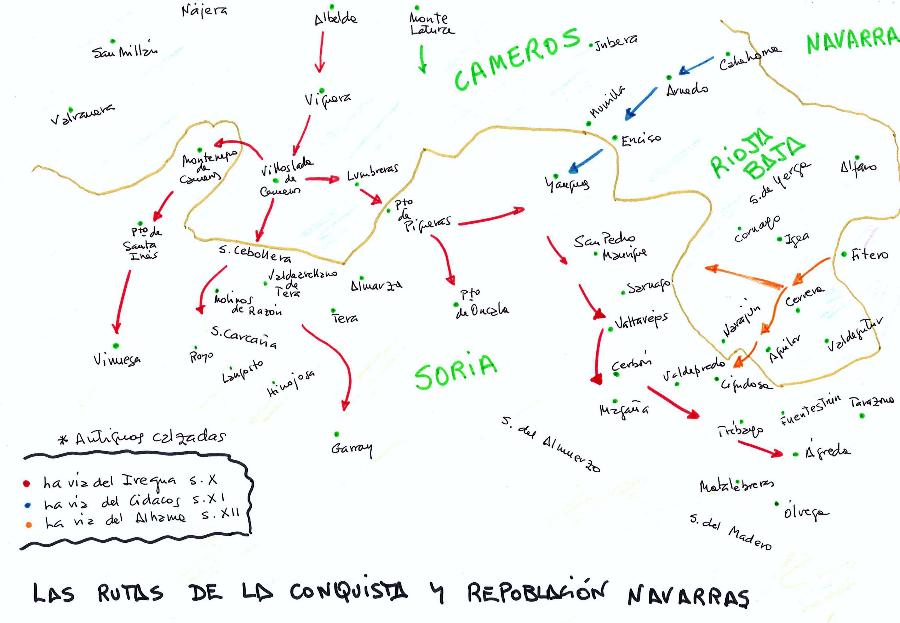 Nájera
Albelda
Monte
Latura
San Millán
CAMEROS
Jubera
NAVARRA
Calahorra
Arnedo
Viguera
Munilla
Valvanera
Enciso
RIOJA
BAJA
Montenegro
de
Cameros
Villoslada
de
Cameros
Lumbreras
Yanguas
S. de Yerga
Alfaro
Pto
de
Piqueras
Cornago
Igea
Pto de
Santa
Inés
S. Cebollera
San Pedro
Manrique
Fitero
Valdeavellano
de
Tera
Almarza
Sarnago
Cervera
Molinos
de Razón
Pto
de Oncala
Tera
Valtajeros
Navajún
Valdegutur
S. Carcaña
Aguilar
Vinuesa
Royo
Langosto
Hinojosa
SORIA
Cerbón
Valdeprado
Cigudosa
Magaña
Fuentestrún
Tarazona
S. del Almuerzo
Trébago
* Antiguas calzadas
Garray
Ágreda
La vía del Iregua s. X
La vía del Cidacos s. XI
La vía del Alhama s. XII
Matalebreras
Ólvega
S. del Madero
LAS RUTAS DE LA CONQUISTA Y REPOBLACIÓN NAVARRAS